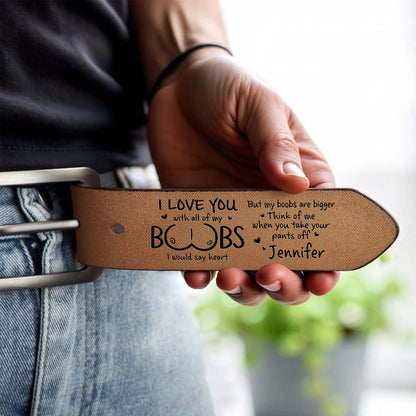 I LOVE YOU
with all of my
BOOBS
I would say heart
But my boobs are bigger
Think of me
when you take your
pants off
Jennifer